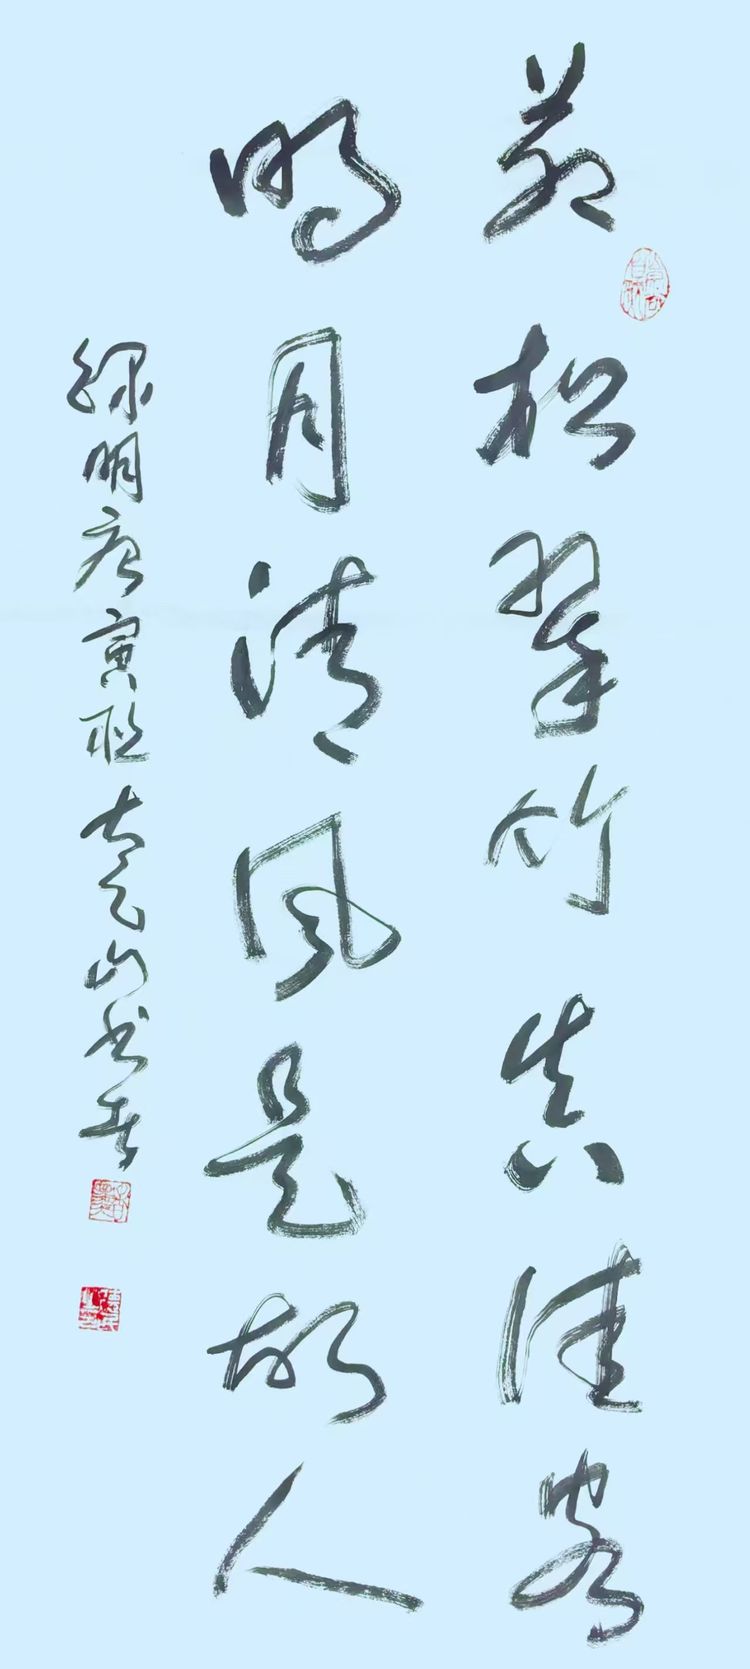 苍松翠竹真佳客
明月清风是故人
录明唐寅联 山书